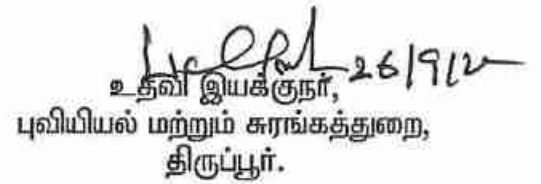 26/9/2
உதவி இயக்குநர்,
புவியியல் மற்றும் சுரங்கத்துறை,
திருப்பூர்.